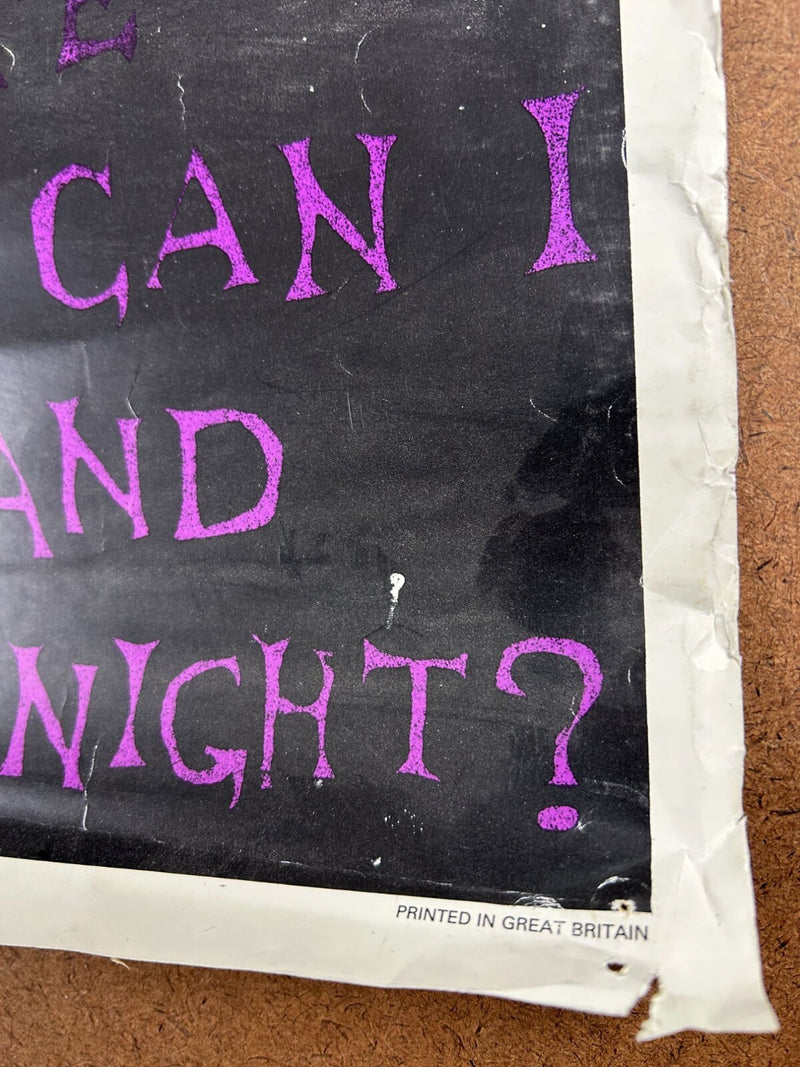 E
CAN I
AND
NIGHT?
PRINTED IN GREAT BRITAIN